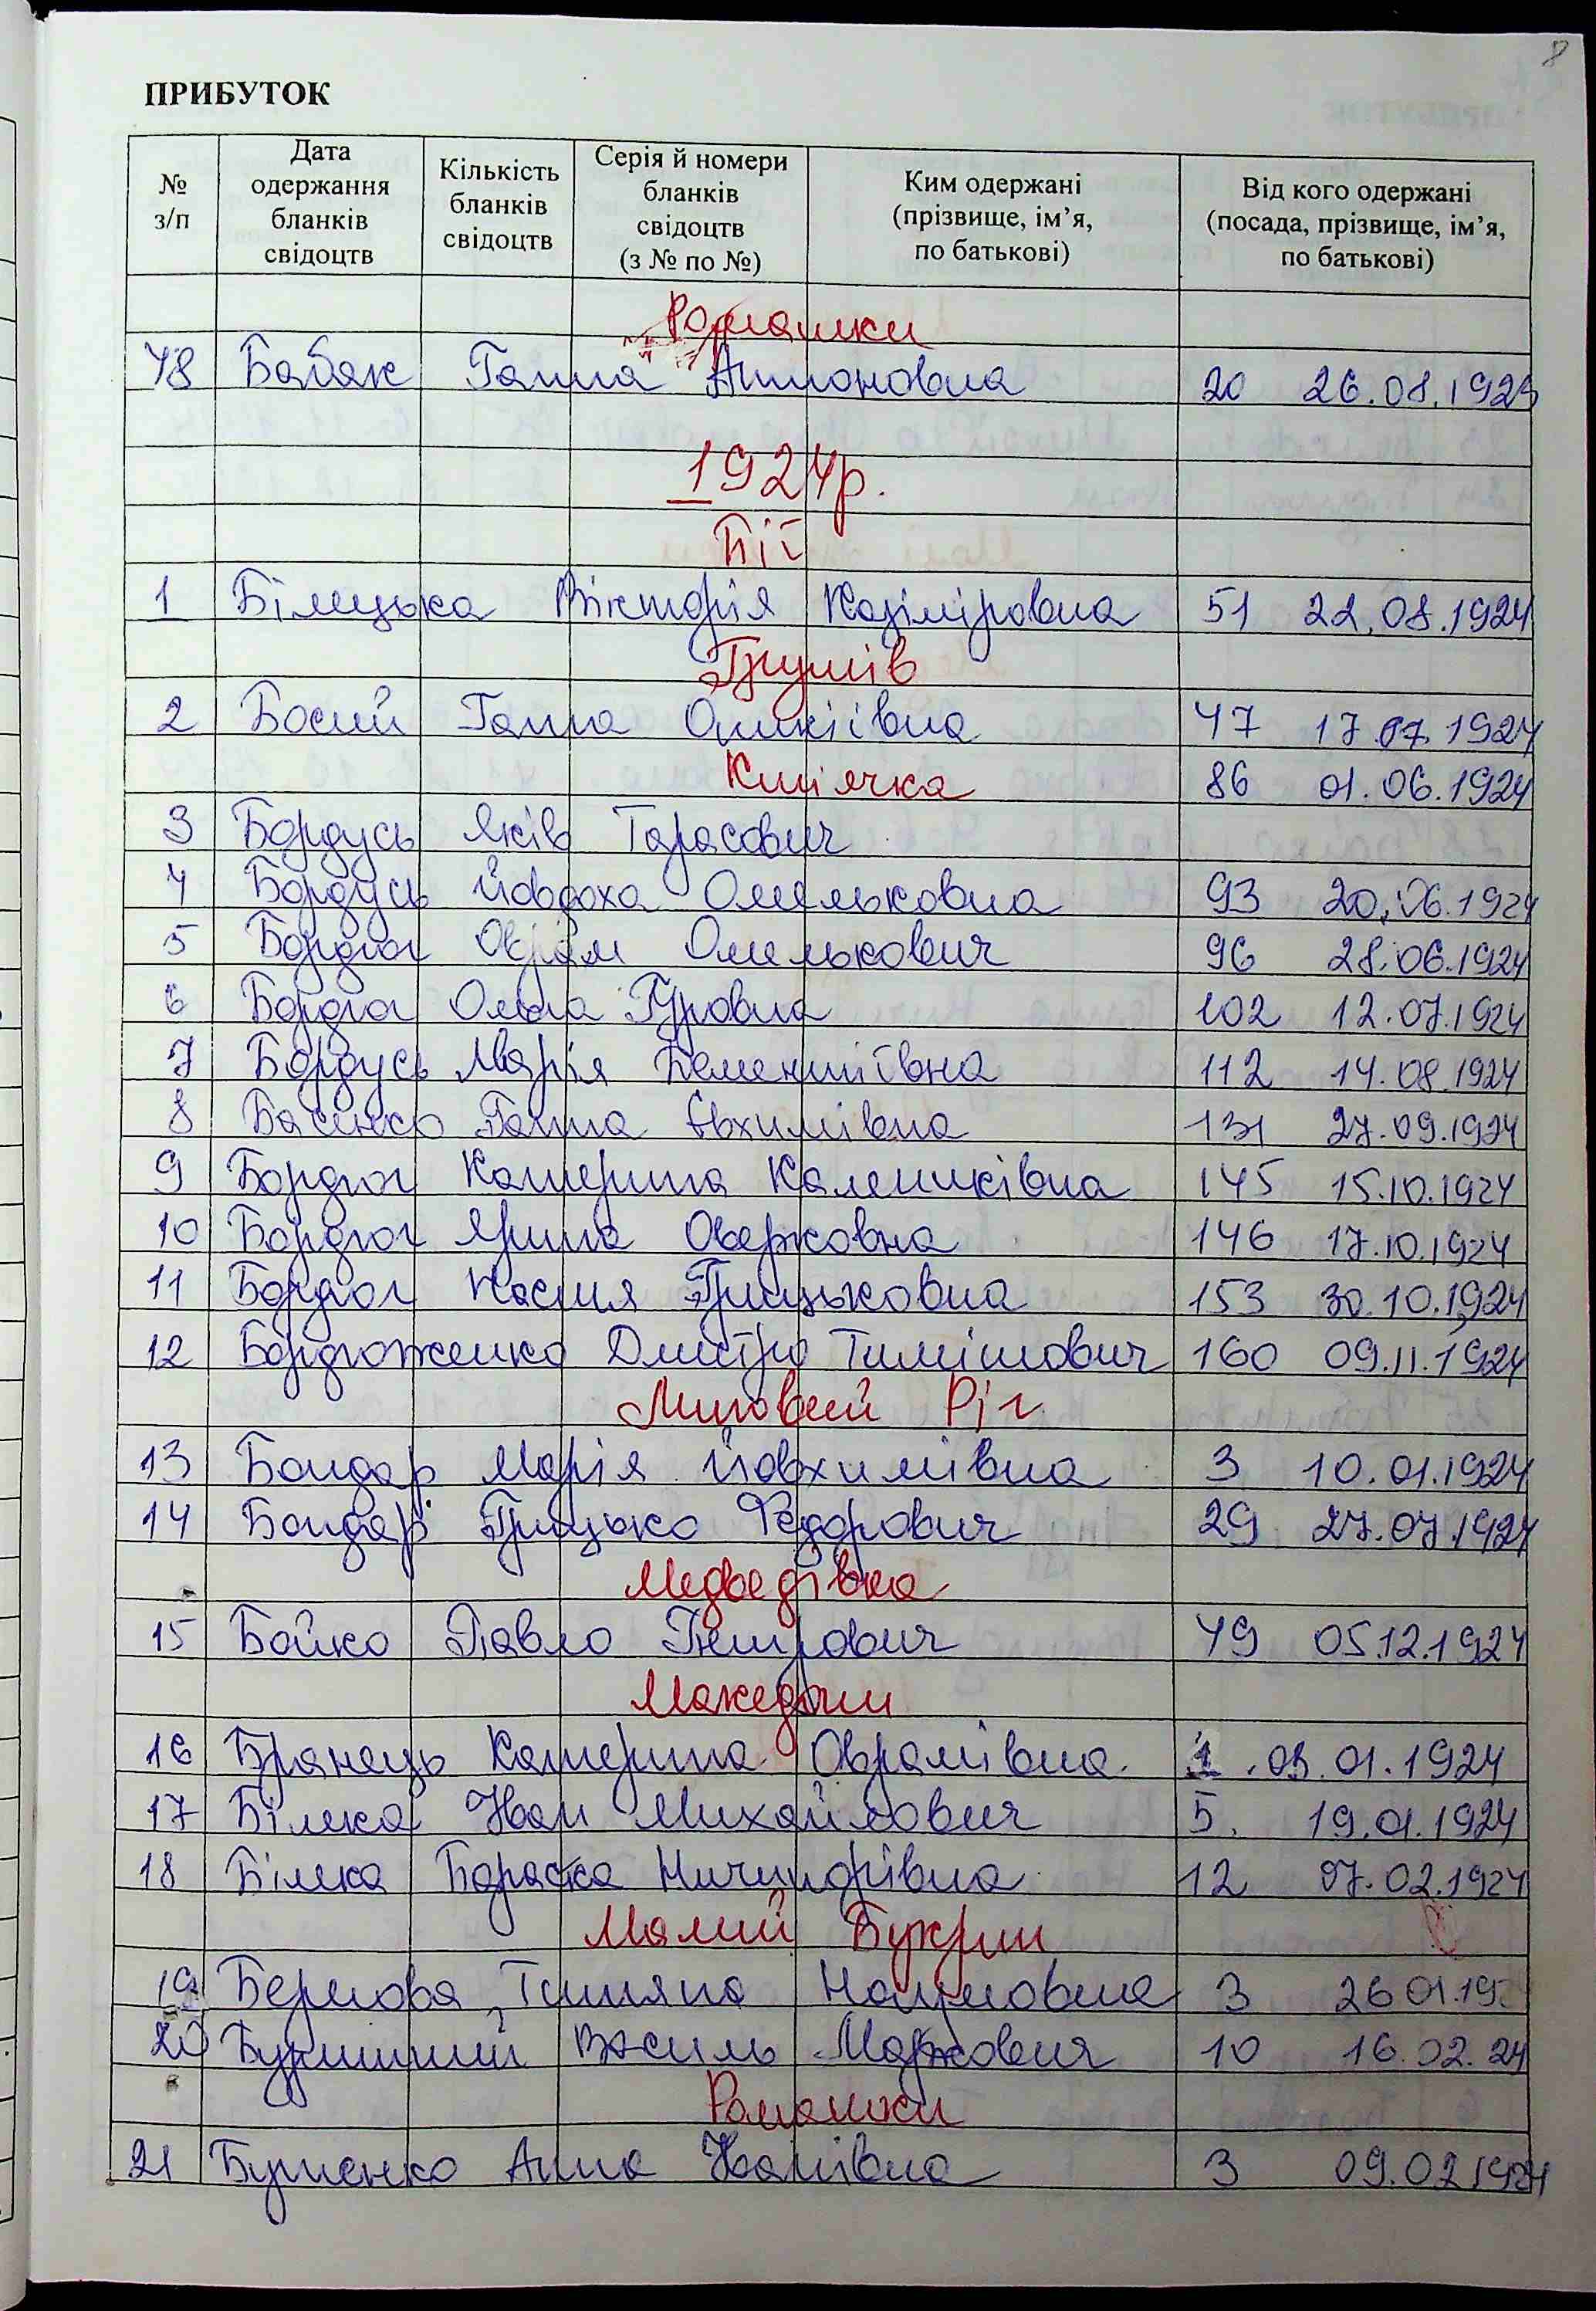 8
ПРИБУТОК
№ з/п
Дата одержання бланків свідоцтв
Кількість бланків свідоцтв
Серія й номери бланків свідоцтв (з № по №)
Ким одержані (прізвище, ім’я, по батькові)
Від кого одержані (посада, прізвище, ім’я, по батькові)
Ромашки
48 Бабак Ганна Антоновна 20 26.08.1923
1924р.
Бії
1 Білецька Вікторія Казіміровна 51 22.08.1924
Грушів
2 Босий Ганна 47 17.07.1924
Кип'ячка 86 01.06.1924
3 Бордусь Яків Тарасович
4 Бордусь Йовдоха Омельковна 93 20.06.1924
5 Бордюг Оврам Омелькович 96 28.06.1924
6 Бордюг Ольга Гуровна 102 12.07.1924
7 Бордусь Марія 112 14.08.1924
8 Басенко Ганна Євхимівна 131 27.09.1924
9 Бордюг Катерина Калениківна 145 15.10.1924
10 Бордюг Ярина Оверковна 146 17.10.1924
11 Бордюг Настя Грицьковна 153 30.10.1924
12 Бордюженко Дмитро Тимішович 160 09.11.1924
Липовий Ріг
13 Бондар Марія Йовхимівна 3 10.01.1924
14 Бондар Грицько Федорович 29 27.07.1924
Медведівка
15 Бойко Павло Петрович 49 05.12.1924
Македони
16 Бранець Катерина Оврамівна 1. 03.01.1924
17 Білека Іван Михайлович 5. 19.01.1924
18 Білека Параска Ничипорівна 12 07.02.1924
Малий Букрин
19 Бермова Тетяна Наумовна 3 26 01.19
20 Василь Маркович 10 16.02.24
Ромашки
21 Бутенко Анна Іванівна 3 09.02 1924